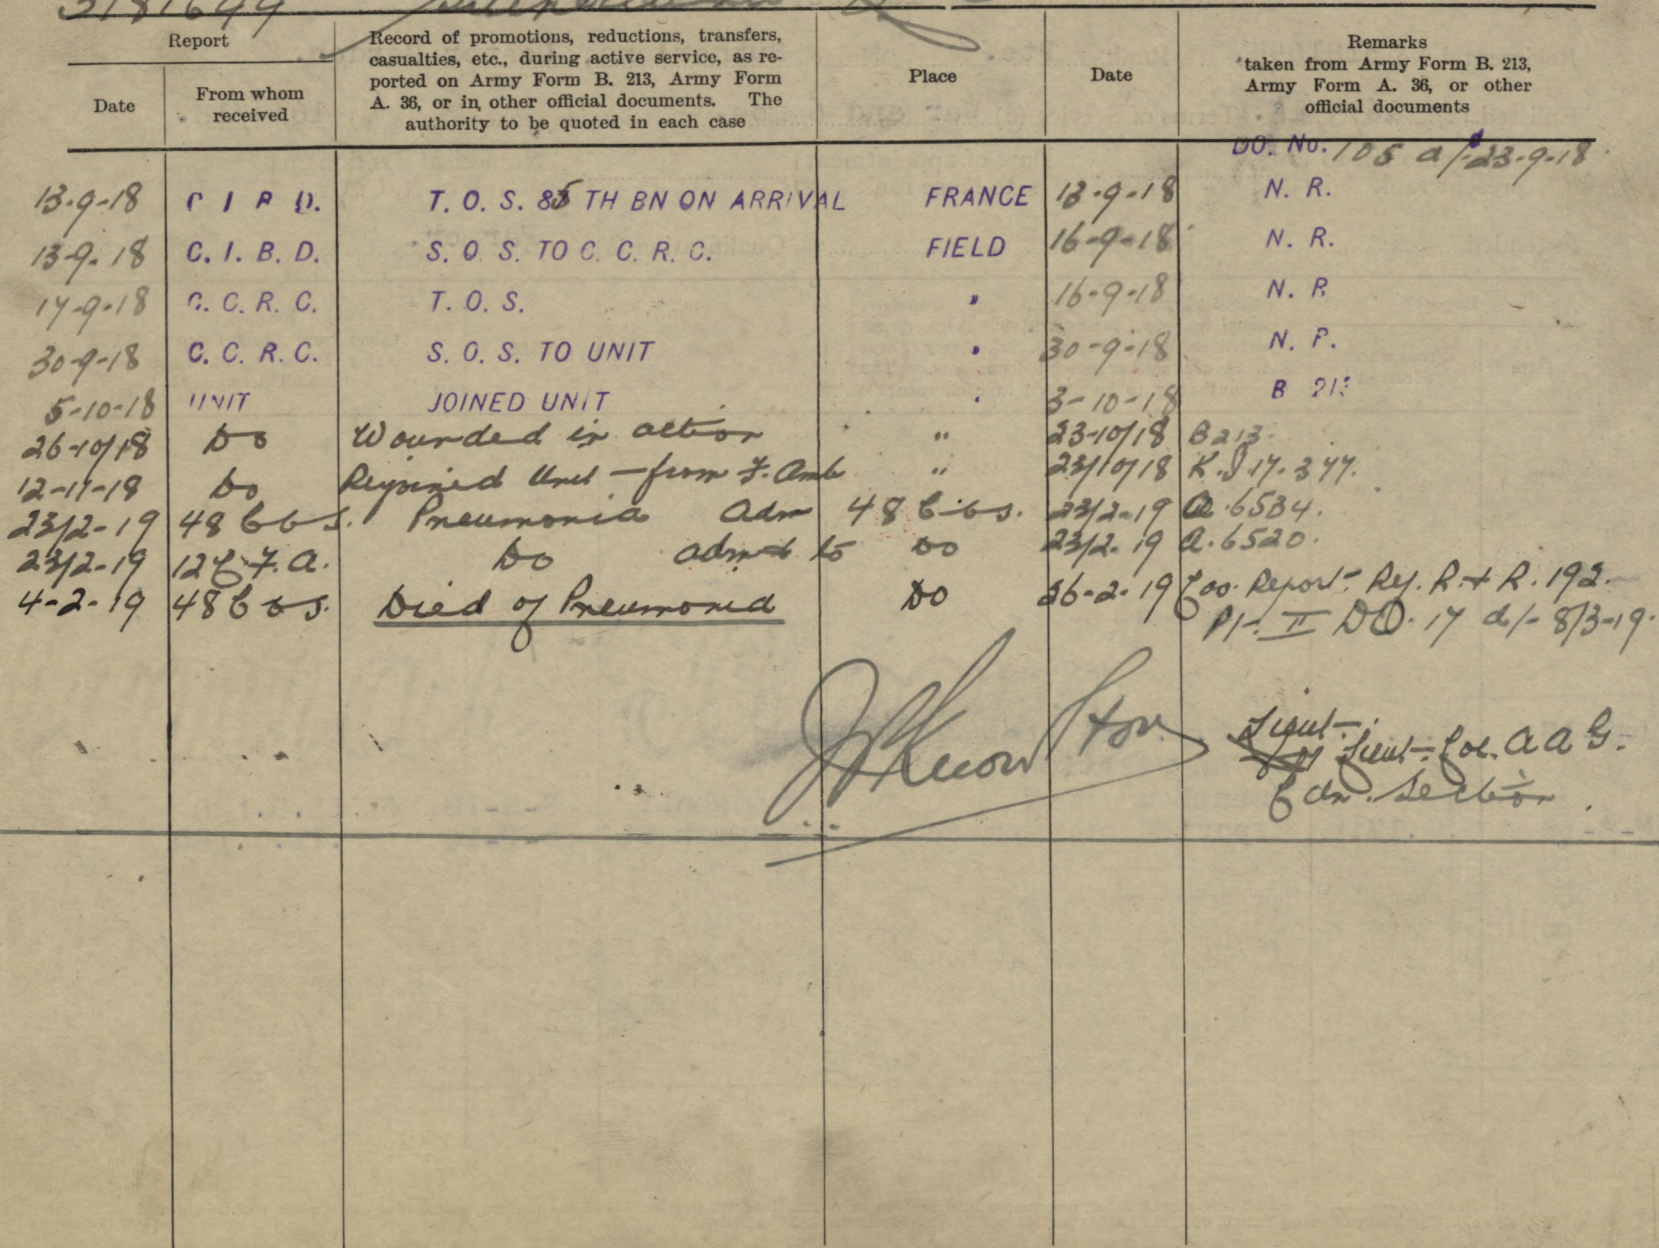 3181699
Report
Date
From whom
received
Record of promotions, reductions, transfers,
casualties, etc., during active service, as re-
ported on Army Form B. 213, Army Form
A. 36, or in other official documents. The
authority to be quoted in each case
Place
Date
Remarks
taken from Army Form B. 213,
Army Form A. 36, or other
official documents
DO. No. 105 d/-23-9-18.
13-9-18 C I B D. T. O. S. 85 TH BN ON ARRIVAL FRANCE 13-9-18 N. R.
13-9-18 C. I. B. D. S. O. S. TO C. C. R. C. FIELD 16-9-18 N. R.
17-9-18 C. C. R. C. T. O. S. " 16-9-18 N. R
30-9-18 C. C. R. C. S. O. S. TO UNIT " 30-9-18 N. R.
5-10-18 UNIT JOINED UNIT " 3-10-18 B 213
26-10/18 Do Wounded in action " 23-10/18 B213.
12-11-18 Do Rejoined Unit - from F. Amb " 23/10/18 K. 17. 377.
23/2-19 48 C C S. Pneumonia Adm 48 C.C.S. 23/2-19 A. 6534.
23/2-19 12 C. F. A. Do adm-t to Do 23/2-19 A. 6520.
4-2-19 48 C C S. Died of Pneumonia Do 26-2-19 Report Rej. R. & R. 192.
Pt. II DO. 17 d/- 8/3-19.
Lieut.
Lieut-Col. A A G.
Cdn. Section.